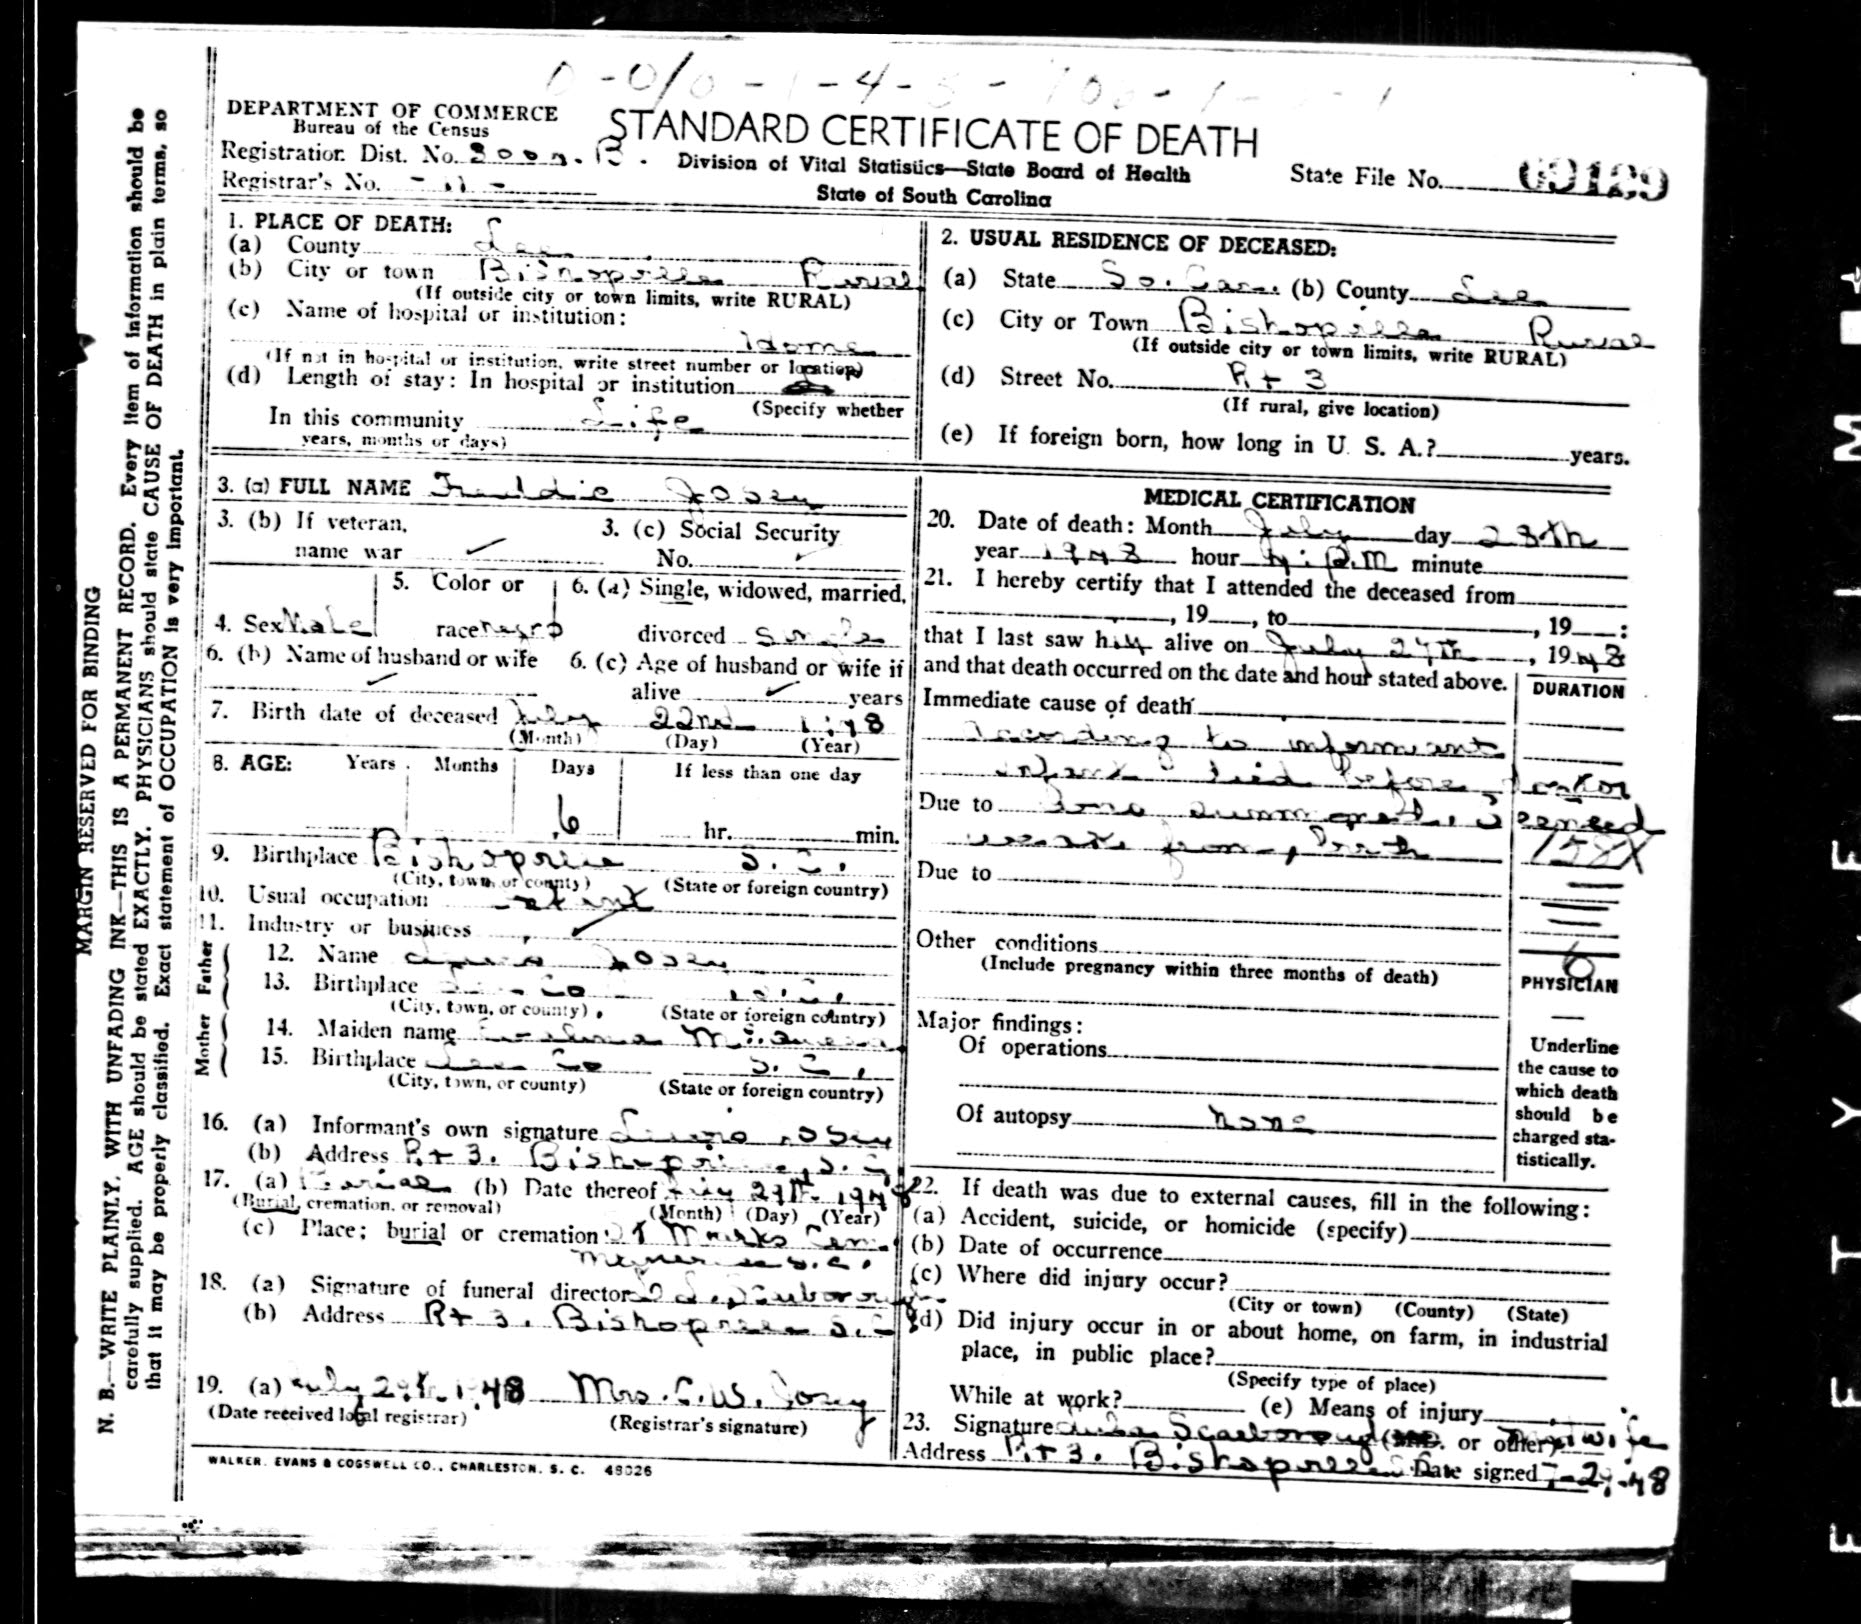 DEPARTMENT OF COMMERCE
Bureau of the Census
STANDARD CERTIFICATE OF DEATH
Registration Dist. No.
Division of Vital Statistics—State Board of Health
State File No.
Registrar's No. - 11 -
State of South Carolina
MARGIN RESERVED FOR BINDING
N. B.—WRITE PLAINLY, WITH UNFADING INK—THIS IS A PERMANENT RECORD. Every item of information should be
carefully supplied. AGE should be stated EXACTLY. PHYSICIANS should state CAUSE OF DEATH in plain terms, so
that it may be properly classified. Exact statement of OCCUPATION is very important.
1. PLACE OF DEATH:
(a) County Lee
(b) City or town Bishopville Rural
(If outside city or town limits, write RURAL)
(c) Name of hospital or institution:
Home
(If not in hospital or institution, write street number or location)
(d) Length of stay: In hospital or institution
(Specify whether
In this community Life
years, months or days)
2. USUAL RESIDENCE OF DECEASED:
(a) State So. Car. (b) County Lee
(c) City or Town Bishopville Rural
(If outside city or town limits, write RURAL)
(d) Street No. Rt 3
(If rural, give location)
(e) If foreign born, how long in U. S. A.? years.
3. (a) FULL NAME Josey
3. (b) If veteran, name war
3. (c) Social Security No.
4. Sex Male
5. Color or race negro
6. (a) Single, widowed, married, divorced Single
6. (b) Name of husband or wife
6. (c) Age of husband or wife if alive years
7. Birth date of deceased July 22nd 1948
(Month) (Day) (Year)
8. AGE: Years Months Days If less than one day
6 hr. min.
9. Birthplace Bishopville S. C.
(City, town, or county) (State or foreign country)
10. Usual occupation
11. Industry or business
Father
12. Name Josey
13. Birthplace Lee Co S. C.
(City, town, or county) (State or foreign country)
Mother
14. Maiden name
15. Birthplace Lee Co S. C.
(City, town, or county) (State or foreign country)
16. (a) Informant's own signature Josey
(b) Address Rt 3. Bishopville, S. C.
17. (a) Burial (b) Date thereof July 29th 1948
(Burial, cremation, or removal) (Month) (Day) (Year)
(c) Place; burial or cremation St Marks Cem.
S. C.
18. (a) Signature of funeral director Scarborough
(b) Address Rt 3. Bishopville S. C
19. (a) July 29th 1948 Mrs. C. W. Josey
(Date received local registrar) (Registrar's signature)
WALKER, EVANS & COGSWELL CO., CHARLESTON, S. C. 48026
MEDICAL CERTIFICATION
20. Date of death: Month July day 28th
year 1948 hour 4: P.M minute
21. I hereby certify that I attended the deceased from
, 19 , to , 19 :
that I last saw him alive on July 27th, 1948
and that death occurred on the date and hour stated above.
DURATION
Immediate cause of death
According to informant
infant died before doctor
Due to was summoned. Seemed
weak from birth
Due to
Other conditions
(Include pregnancy within three months of death)
6
PHYSICIAN
Major findings:
Of operations
Of autopsy None
Underline
the cause to
which death
should be
charged sta-
tistically.
22. If death was due to external causes, fill in the following:
(a) Accident, suicide, or homicide (specify)
(b) Date of occurrence
(c) Where did injury occur?
(City or town) (County) (State)
(d) Did injury occur in or about home, on farm, in industrial
place, in public place?
(Specify type of place)
While at work? (e) Means of injury
23. Signature Scarborough (M.D. or other) Midwife
Address Rt 3. Bishopville Date signed 7-29-48